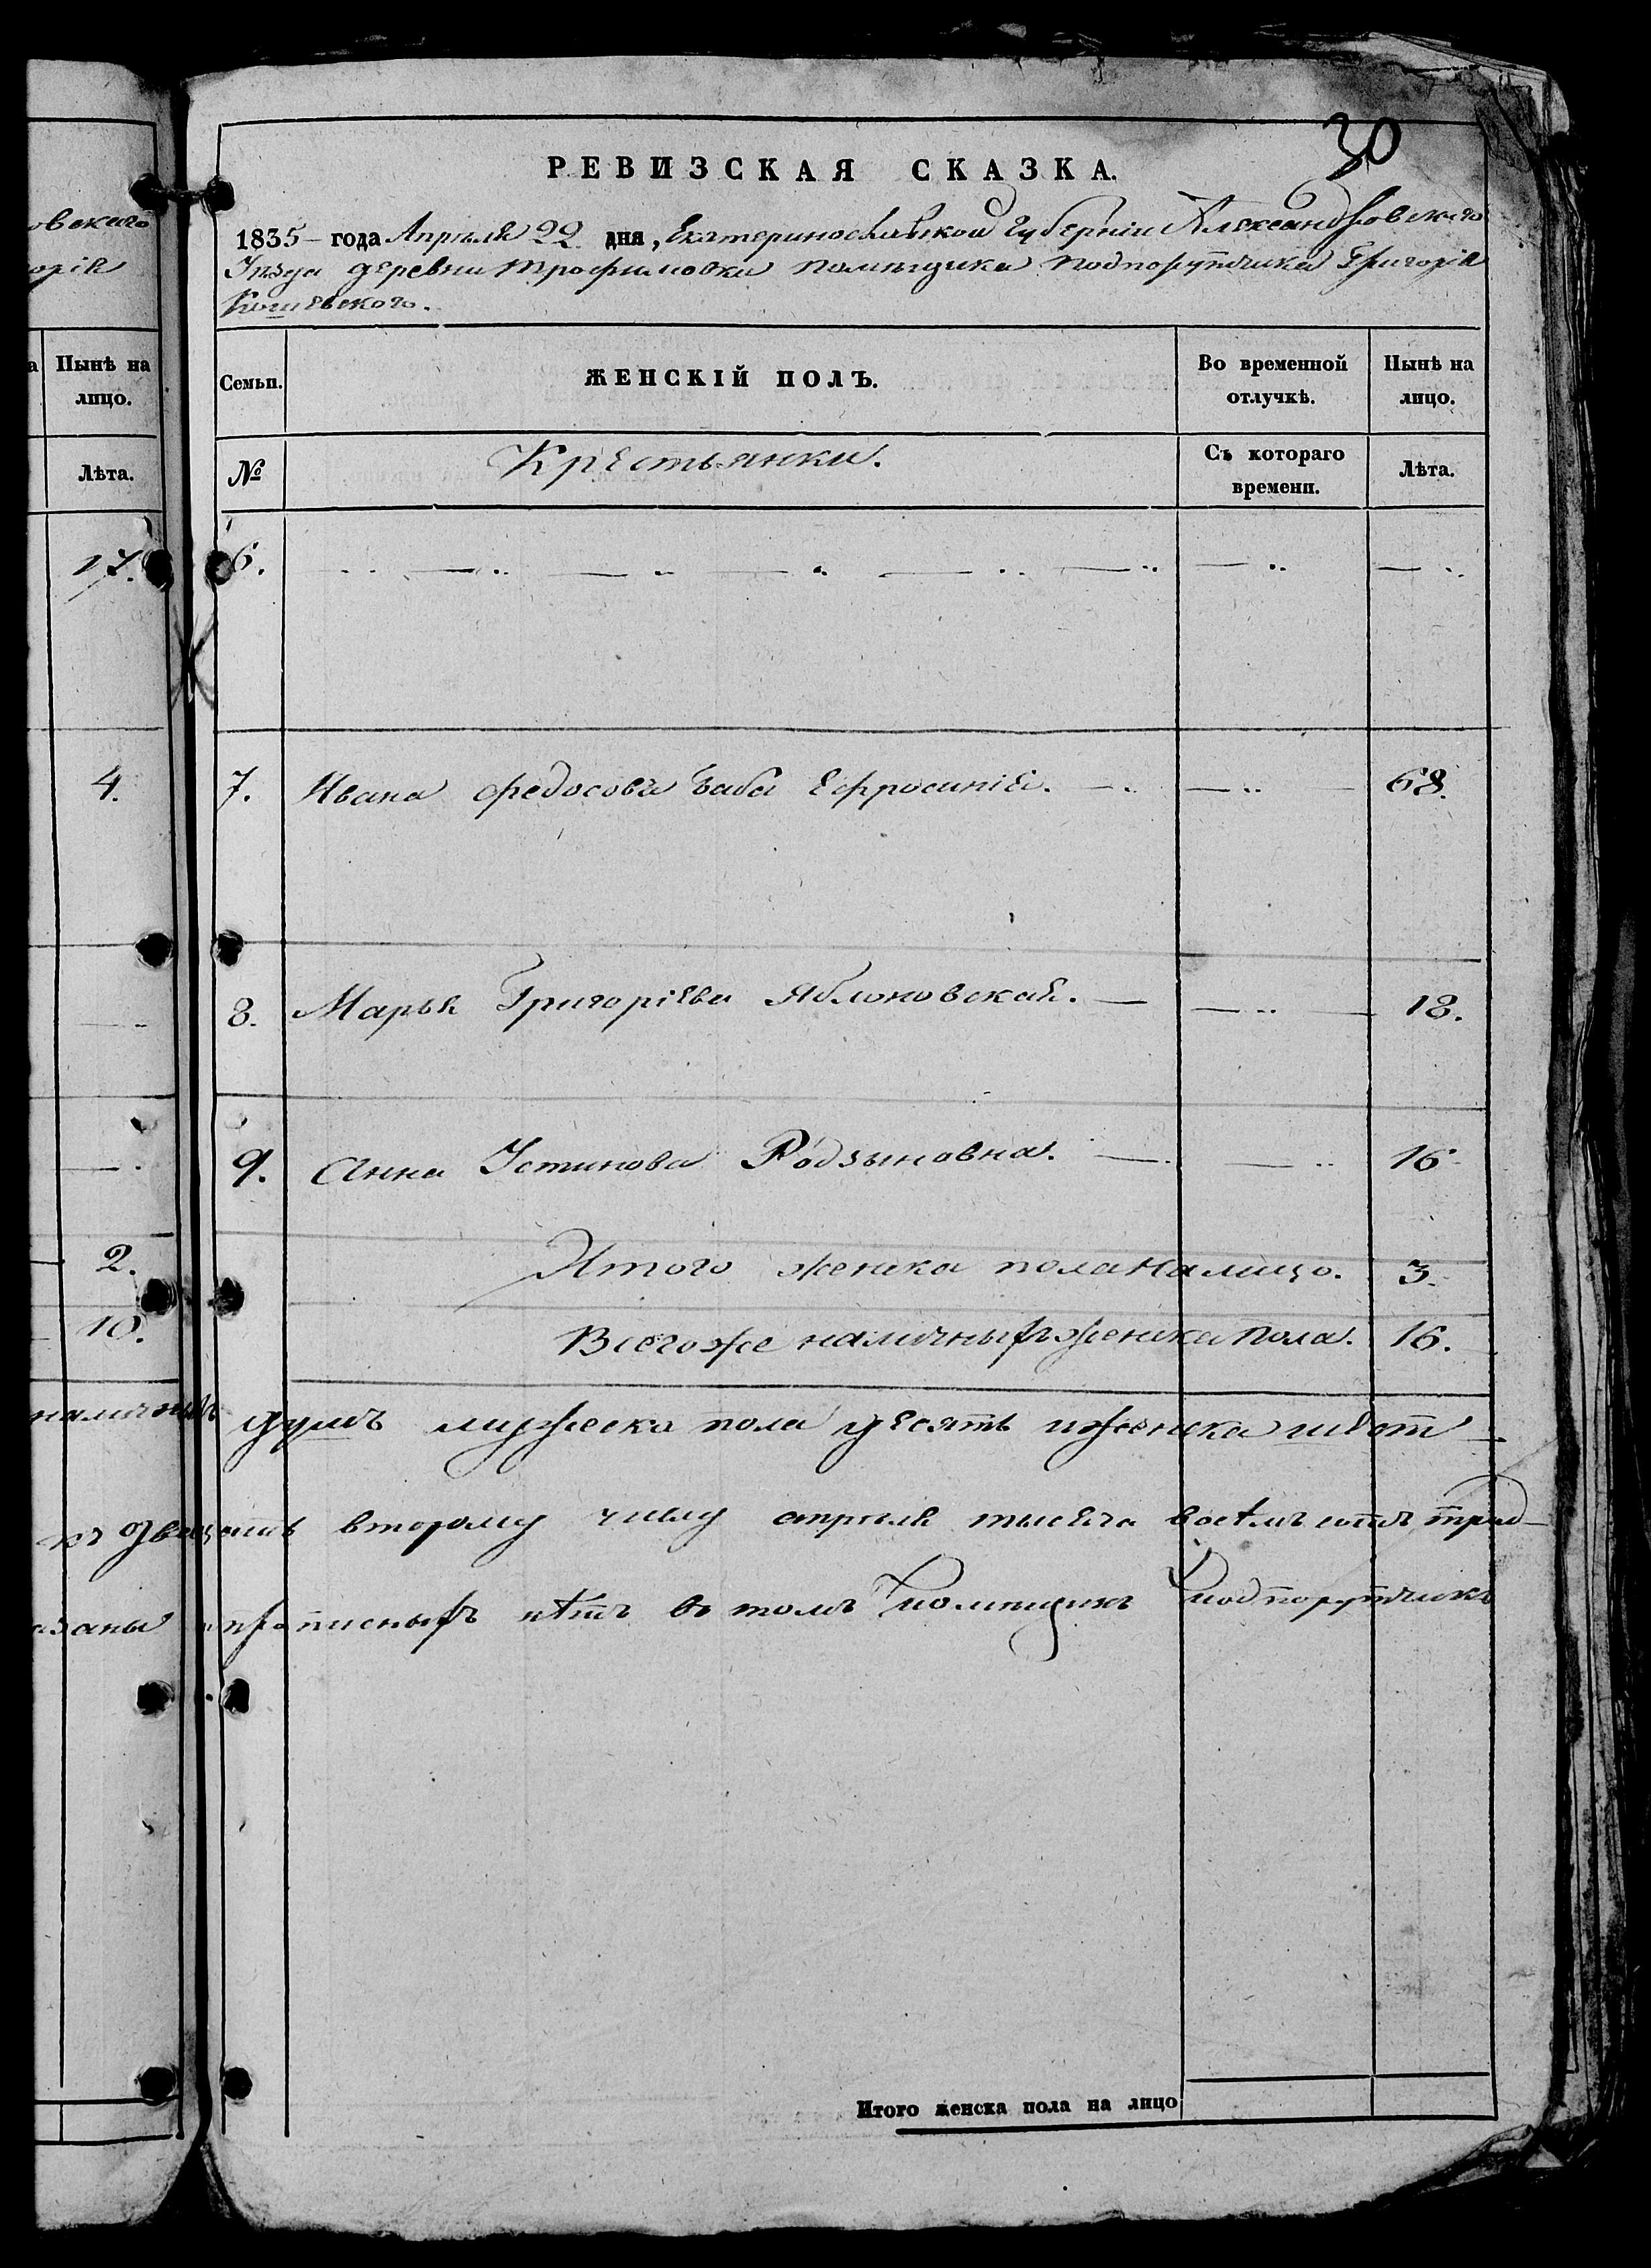 овскаго
орія
а
Нынѣ на
лицо.
Лѣта.
17.
4.
2.
10.
30
РЕВИЗСКАЯ СКАЗКА.
1835 года Апреля 22 дня, Екатеринославской Губерніи Александровскаго
Уѣзда деревни Трофимовки помѣщика подпорутчика Григорія
Семьи.
ЖЕНСКІЙ ПОЛЪ.
Во временной
отлучкѣ.
Нынѣ на
лицо.
№
Крестьянки.
Съ котораго
времени.
Лѣта.
6.
7. Ивана Федосова баба Ефросинія. 68.
8. Марья Григоріева Яблоновская. 18.
9. Анна Устинова Родзыновна. 16
Итого женска пола налицо. 3.
Всего же наличныхъ женска пола. 16.
наличныхъ душъ мужеска пола десять и женска шест
къ двадцать второму числу апреля тысяча восѣмъ сотъ трид
азаны прописныхъ нѣтъ в томъ помѣщикъ подпорутчикъ
Итого женска пола на лицо